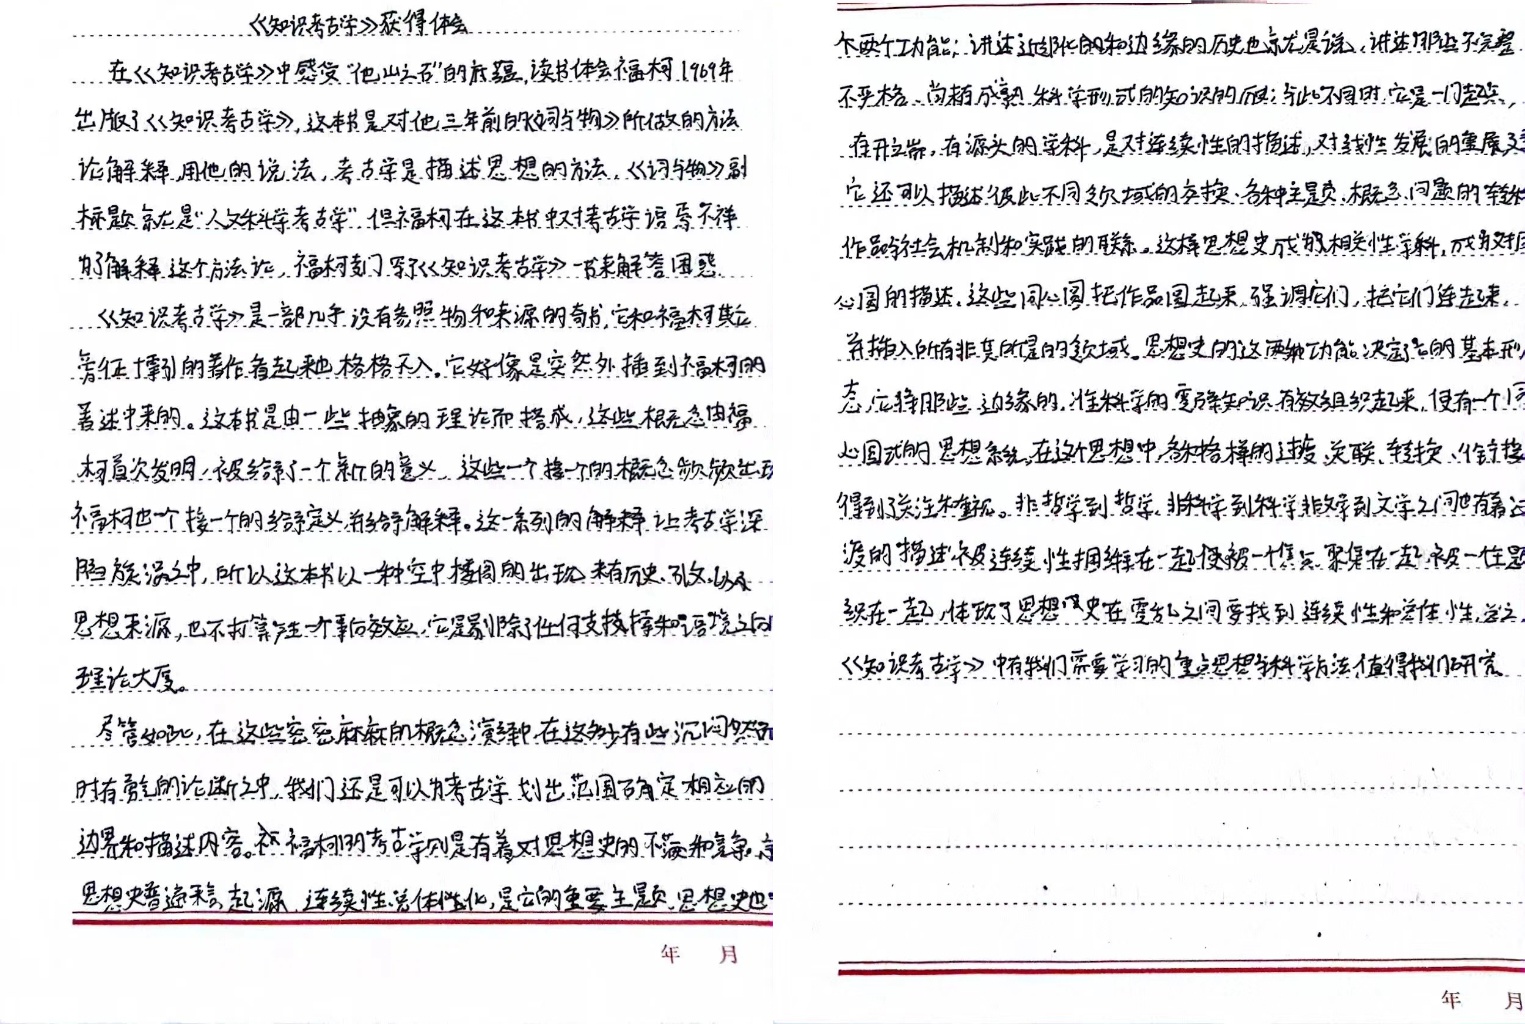 《知识考古学》获得体会
在《知识考古学》中感受“他山之石”的底蕴,读书体会福柯1969年
出版了《知识考古学》,这本书是对他三年前的《词与物》所做的方法
论解释,用他的说法,考古学是描述思想的方法,《词与物》副
标题就是“人文科学考古学”.但福柯在这本书中对考古学语焉不详
为了解释这个方法论,福柯专门写了《知识考古学》一书来解答困惑.
《知识考古学》是一部几乎没有参照物和来源的奇书,它和福柯其它
旁征博引的著作看起来也格格不入。它好像是突然外插到福柯的
著述中来的。这本书是由一些抽象的理论而搭成,这些概念由福
柯首次发明,被给予了一个新的意义,这些一个接一个的概念频频出现
福柯也一个接一个的给予定义并给予解释。这一系列的解释让考古学深
陷旋涡之中,所以这本书以一种空中楼阁的出现,未有历史、引文、以及
思想来源,也不打算产生一个事向效应,它是剔除了任何支持和语境之间
理论大厦。
尽管如此,在这些密密麻麻的概念演绎中,在这多少有些沉闷然而
时有勇气的论断之中,我们还是可以为考古学划出范围确定相应的
边界和描述内容。福柯的考古学则是有着对思想史的不满和竞争,
思想史普遍来言,起源、连续性、总体性化,是它的重要主题,思想史也
个两个功能;讲述近邻化的和边缘的历史也就是说,讲述那些不完整
不严格、尚稍成熟科学形式的知识的历史;与此不同时,它是一门起头,
在开端,有源头的学科,是对连续性的描述,对线性发展的重展
它还可以描述彼此不同多领域的交换、各种主题、概念、问题的转移
作品与社会机制和实践的联系。这样思想史成为相关性学科,成为对同
心圆的描述,这些同心圆把作品围起来,强调它们,把它们连起来,
并插入所有非其所是的领域。思想史的这两种功能决定它的基本形
态,它将那些边缘的,准科学的零碎知识有效组织起来,使有一个同
心圆式的思想系统,在这个思想中,各种各样的过渡、关联、转换、衔接
得到了关注和重视。非哲学到哲学、非科学到科学非文学到文学之间也有着过
渡的描述被连续性捆绑在一起,便被一个焦点聚集在一起,被一个主题
织在一起,体现了思想史在零乱之间要找到连续性和总体性,总之,
《知识考古学》中有我们需要学习的重点思想与科学方法值得我们研究
年 月
年 月